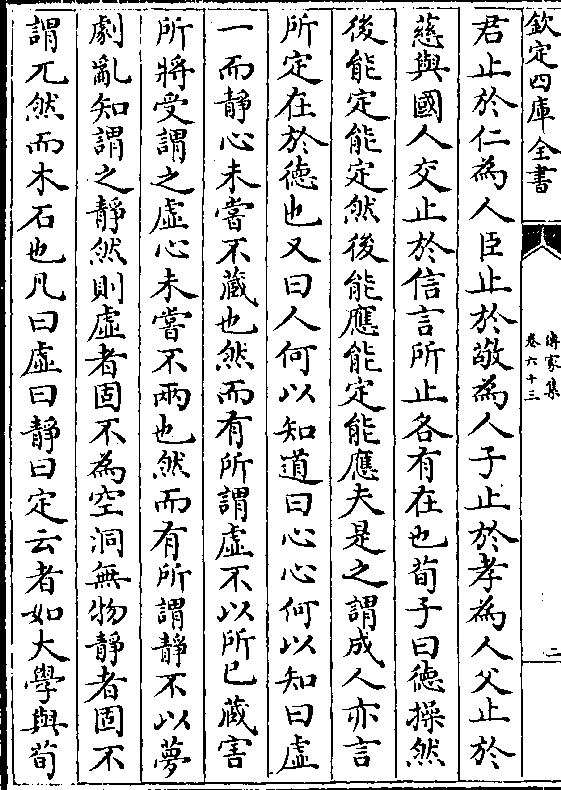 欽定四庫全書
傳家集
卷六十三
二
君止於仁為人臣止於敬為人子止於孝為人父止於
慈與國人交止於信言所止各有在也荀子曰德操然
後能定能定然後能應能定能應夫是之謂成人亦言
所定在於德也又曰人何以知道曰心心何以知曰虛
一而靜心未嘗不藏也然而有所謂虛不以所已藏害
所將受謂之虛心未嘗不兩也然而有所謂靜不以夢
劇亂知謂之靜然則虛者固不為空洞無物靜者固不
謂兀然而木石也凡曰虛曰靜曰定云者如大學與荀